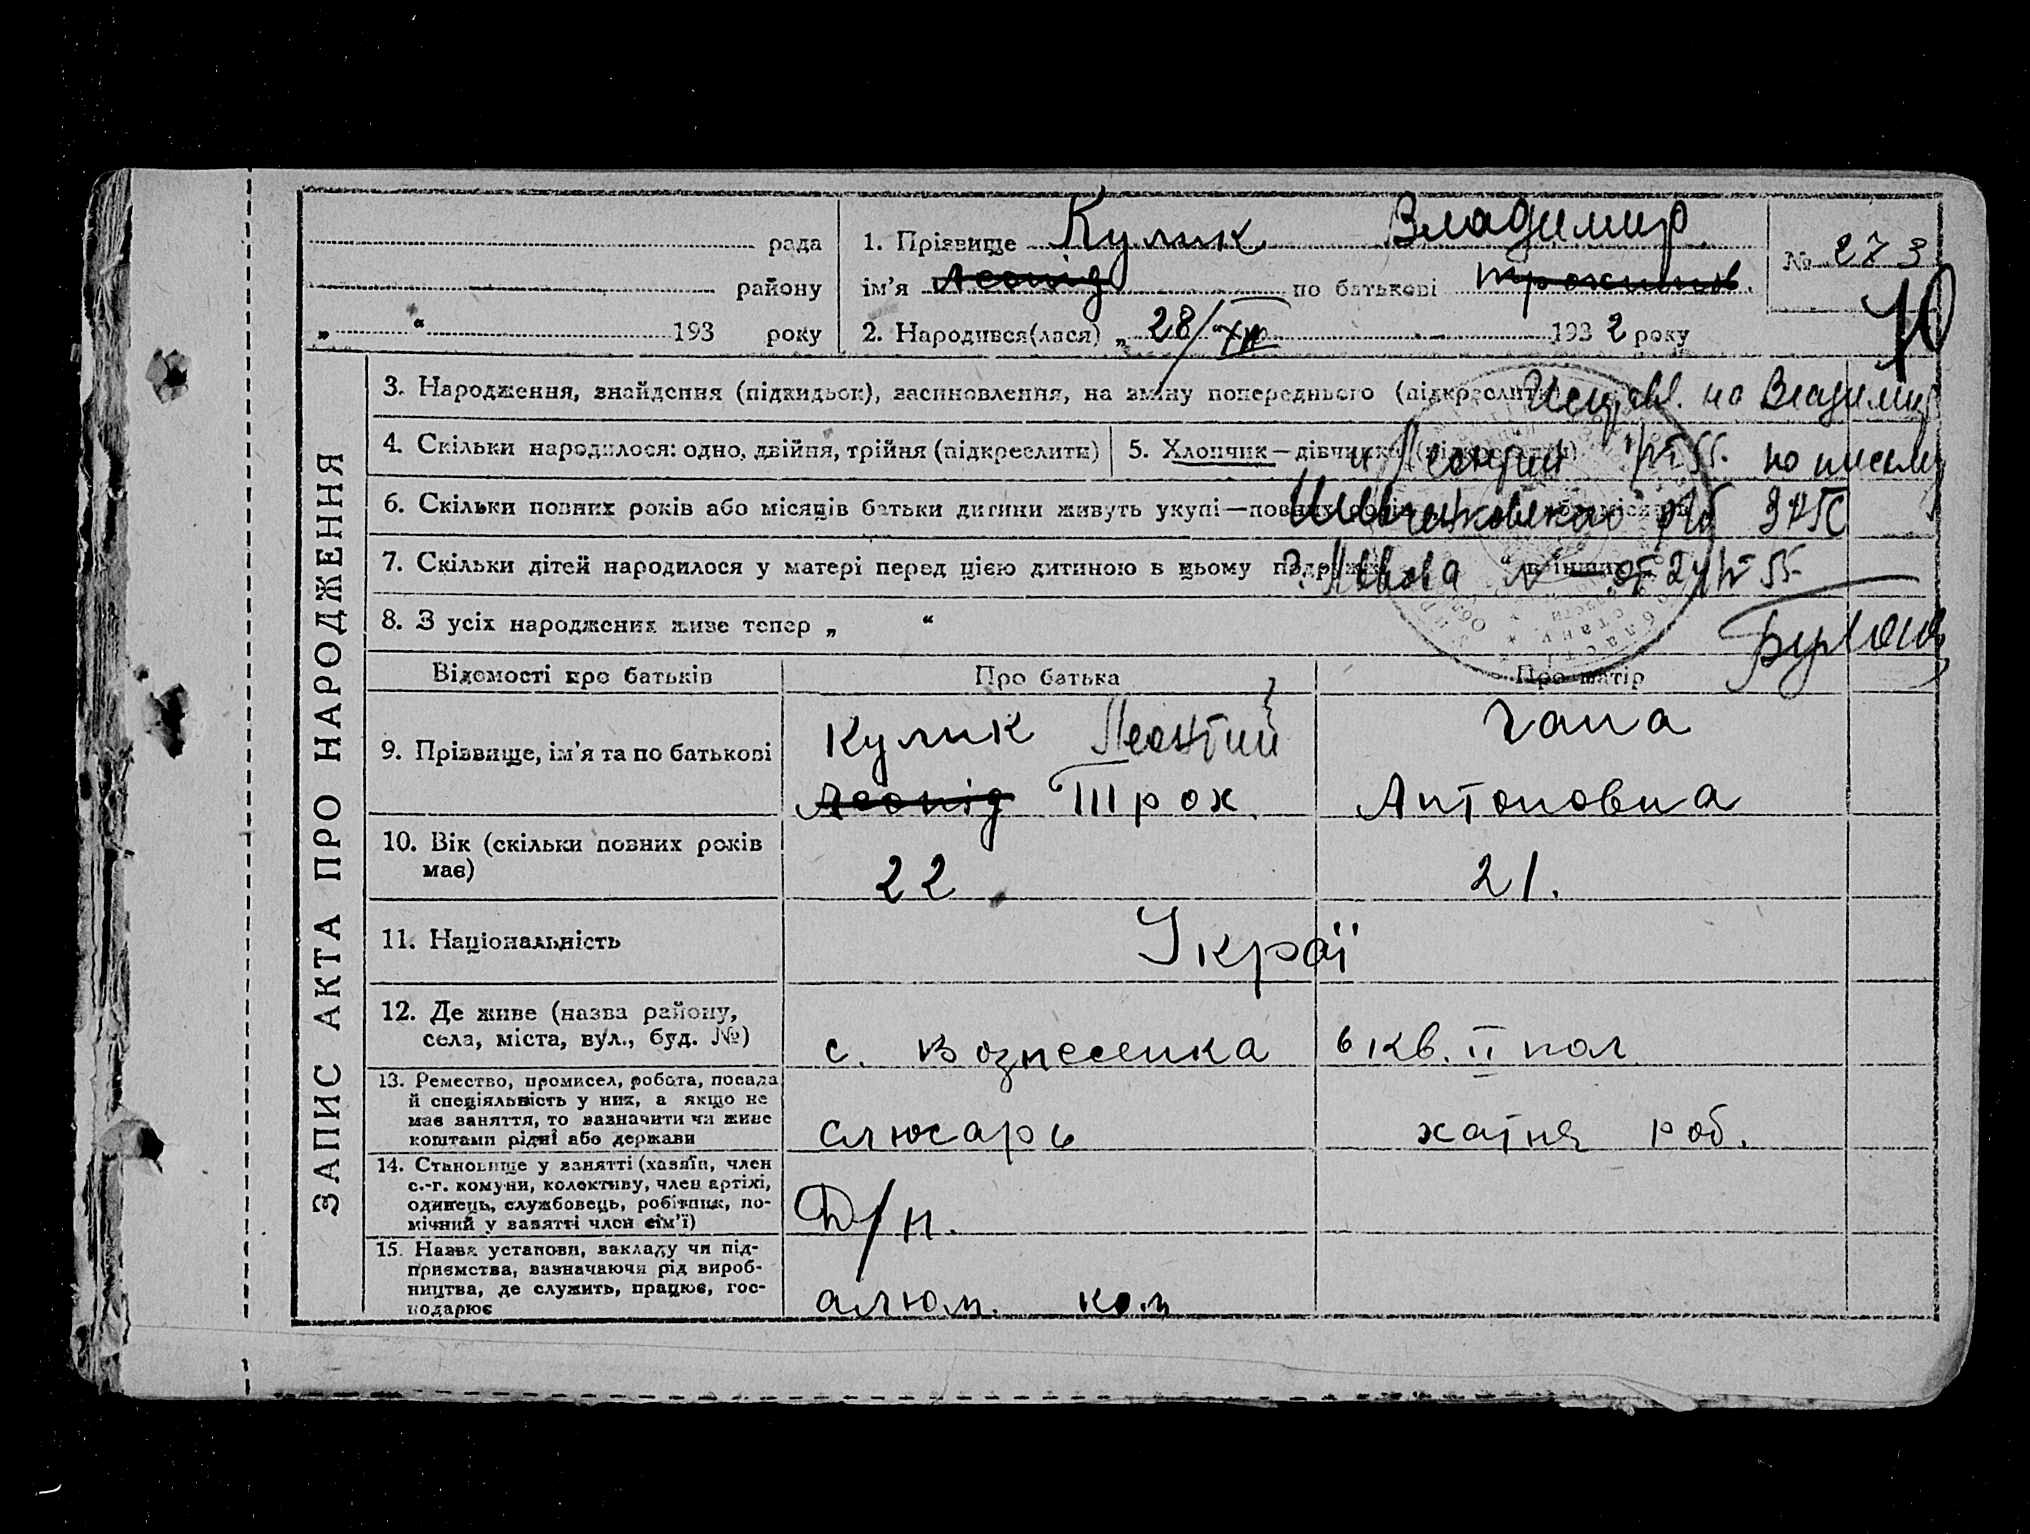 рада
району
„ “ 193 року
1. Прізвище Кулик Владимир
ім’я Леонід по батькові
2. Народився(лася) „ 28/XII 1932 року
№ 273
ЗАПИС АКТА ПРО НАРОДЖЕННЯ
3. Народження, знайдення (підкидьок), засиновлення, на зміну попереднього (підкреслити)
Исправл. на Владимир
4. Скільки народилося: одно, двійня, трійня (підкреслити)
5. Хлопчик—дівчинка
и Леонтий 55. по письму
6. Скільки повних років або місяців батьки дитини живуть укупі—повних
Шевченковского ЗАГС
7. Скільки дітей народилося у матері перед цією дитиною в цьому подружжі
г. Львова № от 55
8. З усіх народжених живе тепер „ “
Відомості про батьків Про батька Про матір
9. Прізвище, ім’я та по батькові
Кулик Леонтий
Леонід Трох.
Гапа
Антоновна
10. Вік (скільки повних років має)
22
21.
11. Національність
Украї
12. Де живе (назва району,
села, міста, вул., буд. №)
с. Вознесенка
6 кв. II пол.
13. Ремество, промисел, робота, посада
й спеціяльність у них, а якщо не
має заняття, то зазначити чи живе
коштами рідні або держави
слюсарь
хатня роб.
14. Становище у занятті (хазяїн, член
с.-г. комуни, колективу, член артілі,
одинець, службовець, робітник, по-
мічний у занятті член сім’ї)
15. Назва установи, закладу чи під-
приємства, зазначаючи рід вироб-
ництва, де служить, працює, гос-
подарює
алюм. ком